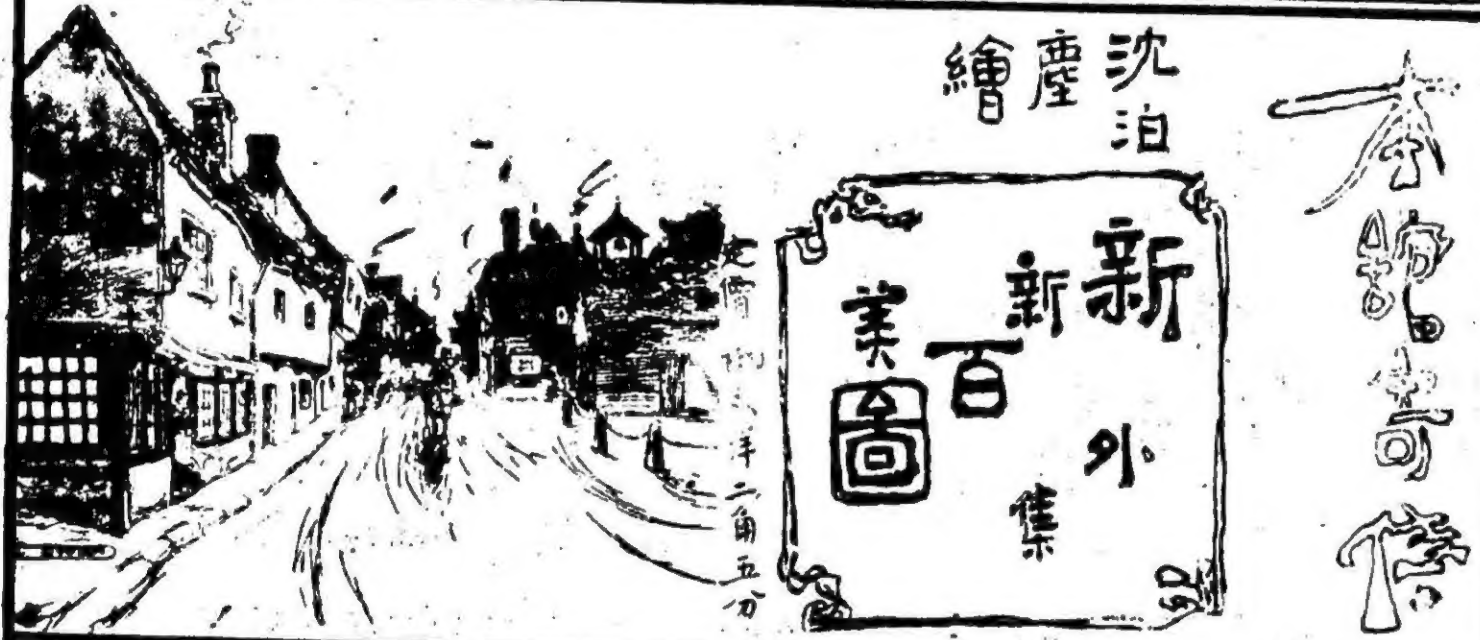 本館寄售
沈泊塵繪
新新百美圖
外集
定價 洋二角五分